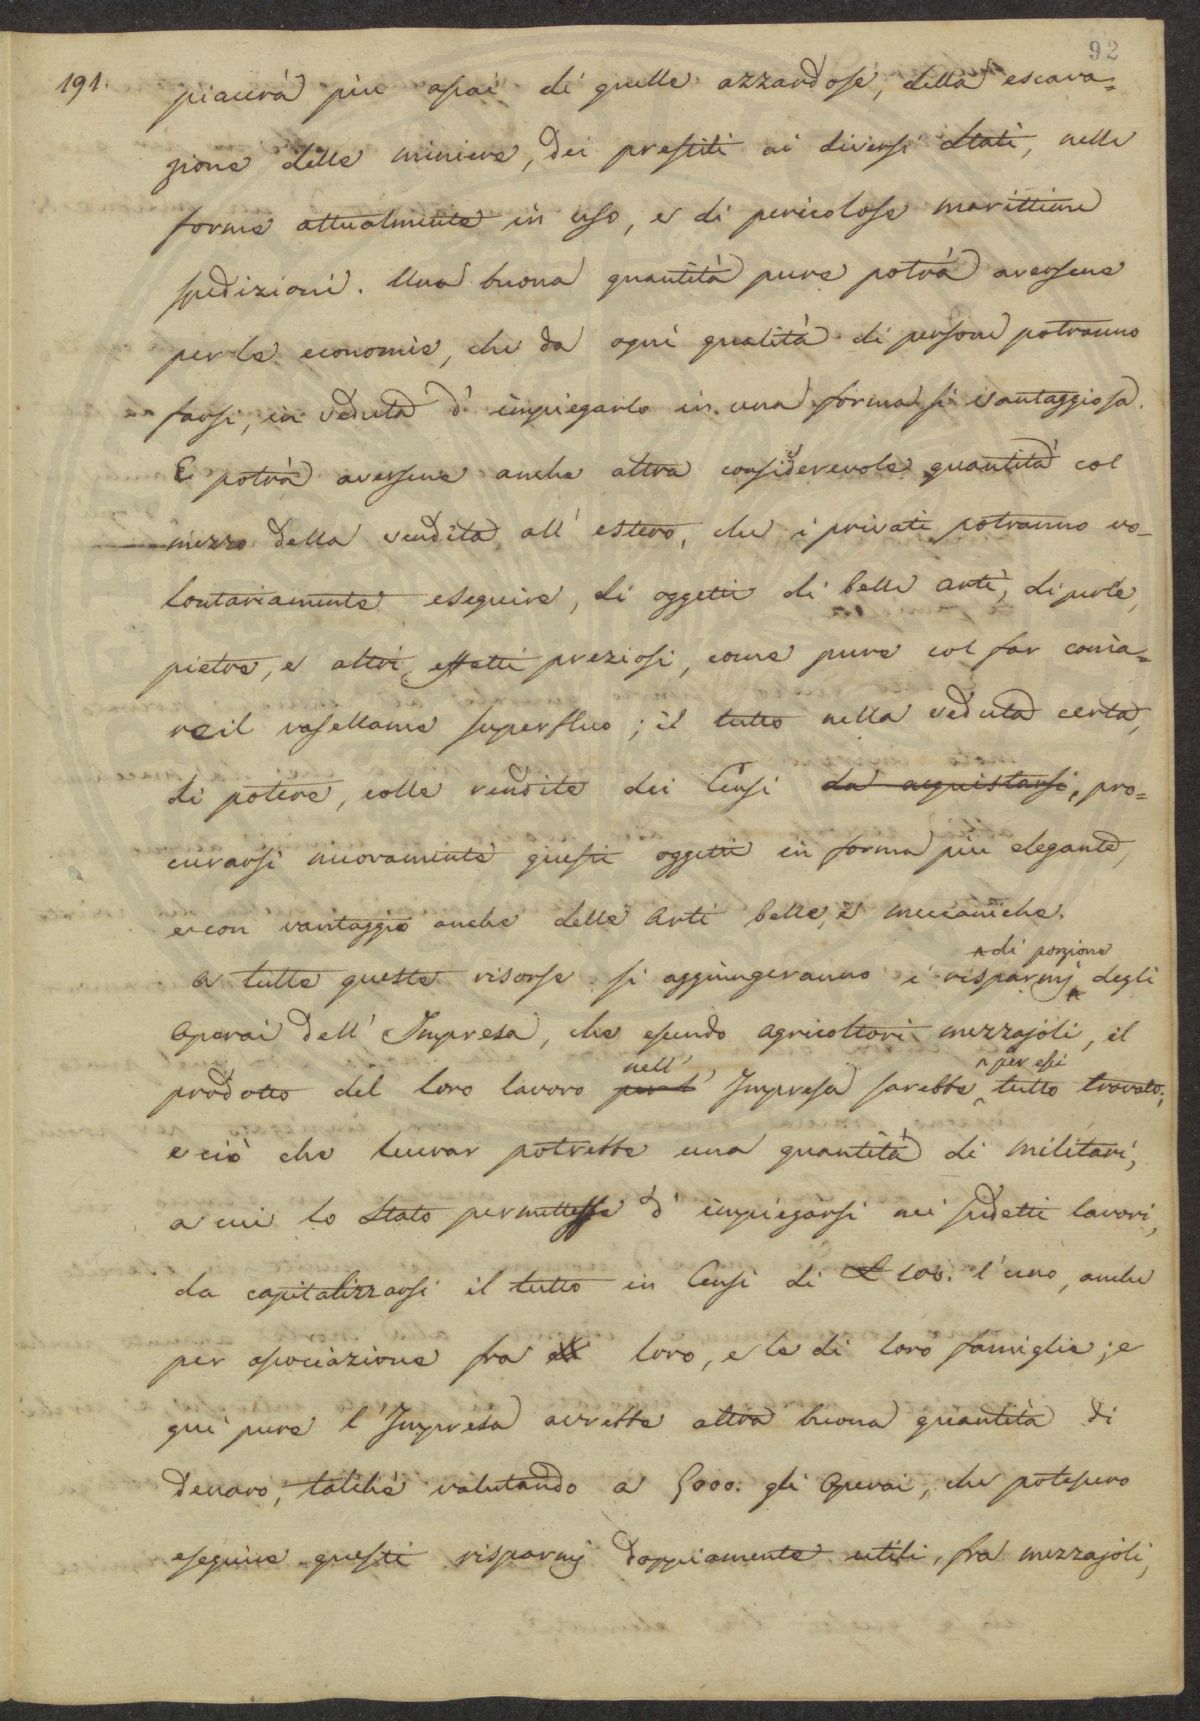 92
191.
piacerà più assai di quelle azzardose, della escava=
zione delle miniere, dei prestiti ai diversi Stati, nelle
forme attualmente in uso, e di pericolose marittime
spedizioni. Una buona quantità pure potrà aversene
per le economie, che da ogni qualità di persone potranno
farsi, in veduta d'impiegarlo in una forma sì vantaggiosa.
E potrà aversene anche altra considerevole quantità col
mezzo della vendita all'estero, che i privati potranno vo-
lontariamente eseguire, di oggetti di belle arti, di perle,
pietre, e altri effetti preziosi, come pure col far conia=
re il vasellame superfluo; il tutto nella veduta certa,
di potere, colle rendite dei Censi da acquistarsi, pro=
curarsi nuovamente questi oggetti in forma più elegante,
e con vantaggio anche delle Arti belle, e meccaniche.
di porzione
A tutte queste risorse si aggiungeranno i risparmj degli
Operai dell'Impresa, che essendo agricoltori mezzajoli, il
nell' per essi
prodotto del loro lavoro per l' Impresa sarebbe tutto trovato;
e ciò che lucrar potrebbe una quantità di militari,
a cui lo Stato permettesse d'impiegarsi nei sudetti lavori,
da capitalizzarsi il tutto in Censi di £ 100. l'uno, anche
per associazione fra loro, e le di loro famiglie; e
quì pure l'Impresa avrebbe altra buona quantità di
denaro, talchè valutando a 5000. gli Operai, che potessero
eseguire questi risparmj doppiamente utili, fra mezzajoli,